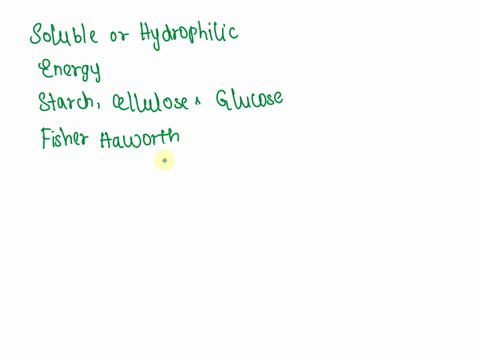 Soluble or Hydrophilic
Energy
Starch, Cellulose & Glucose
Fisher Haworth